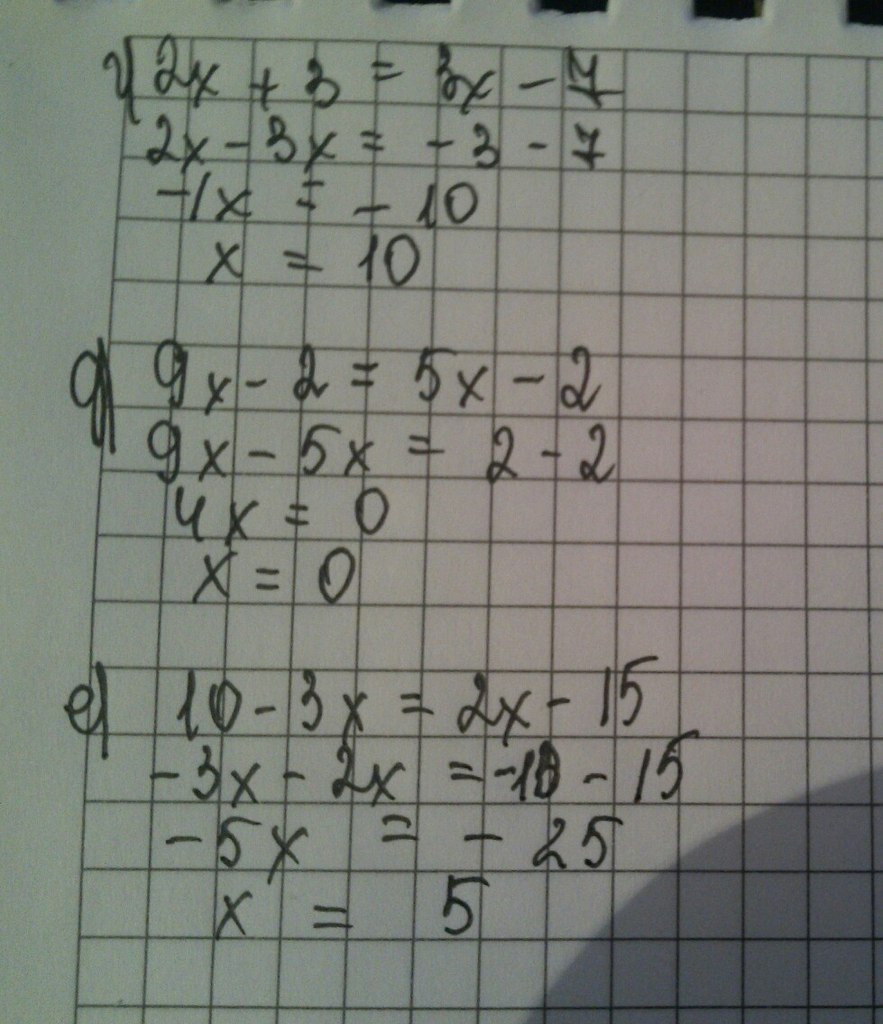 г) 2x + 3 = 3x - 7
2x - 3x = - 3 - 7
-1x = - 10
x = 10
д) 9x - 2 = 5x - 2
9x - 5x = 2 - 2
4x = 0
x = 0
е) 10 - 3x = 2x - 15
- 3x - 2x = -10 - 15
- 5x = - 25
x = 5